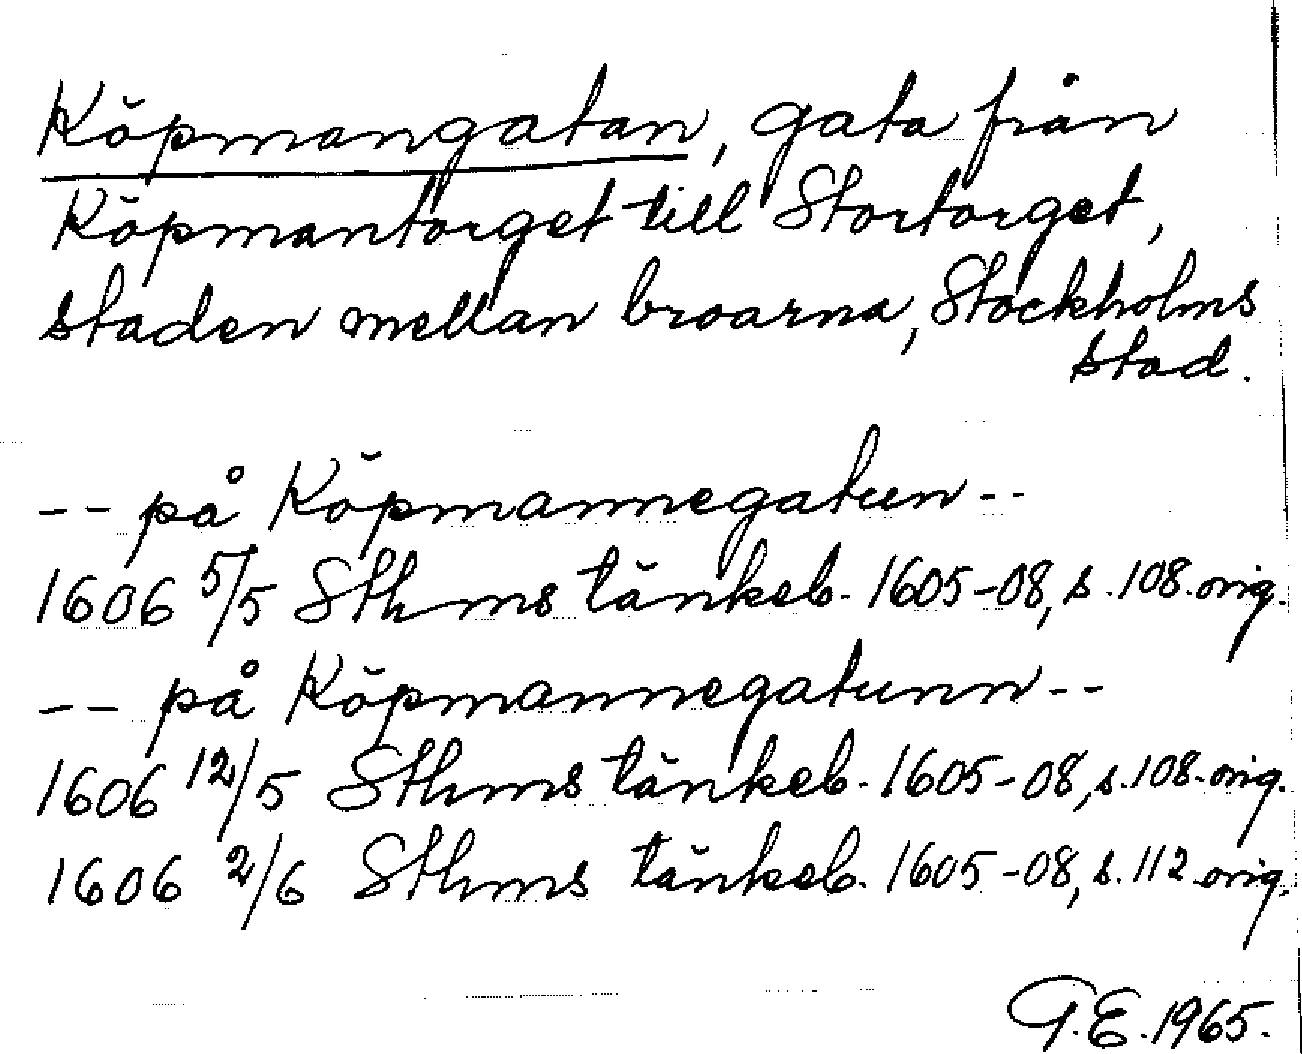 Köpmangatan, gata från
Köpmantorget till Stortorget,
staden mellan broarna, Stockholms
stad.
-- på Köpmannegatun --
1606 5/5 Sthms tänkeb. 1605-08, s. 108. orig.
-- på Köpmannegatunn --
1606 12/5 Sthms tänkeb. 1605-08, s. 108. orig.
1606 2/6 Sthms tänkeb. 1605-08, s. 112 orig.
G.E. 1965.